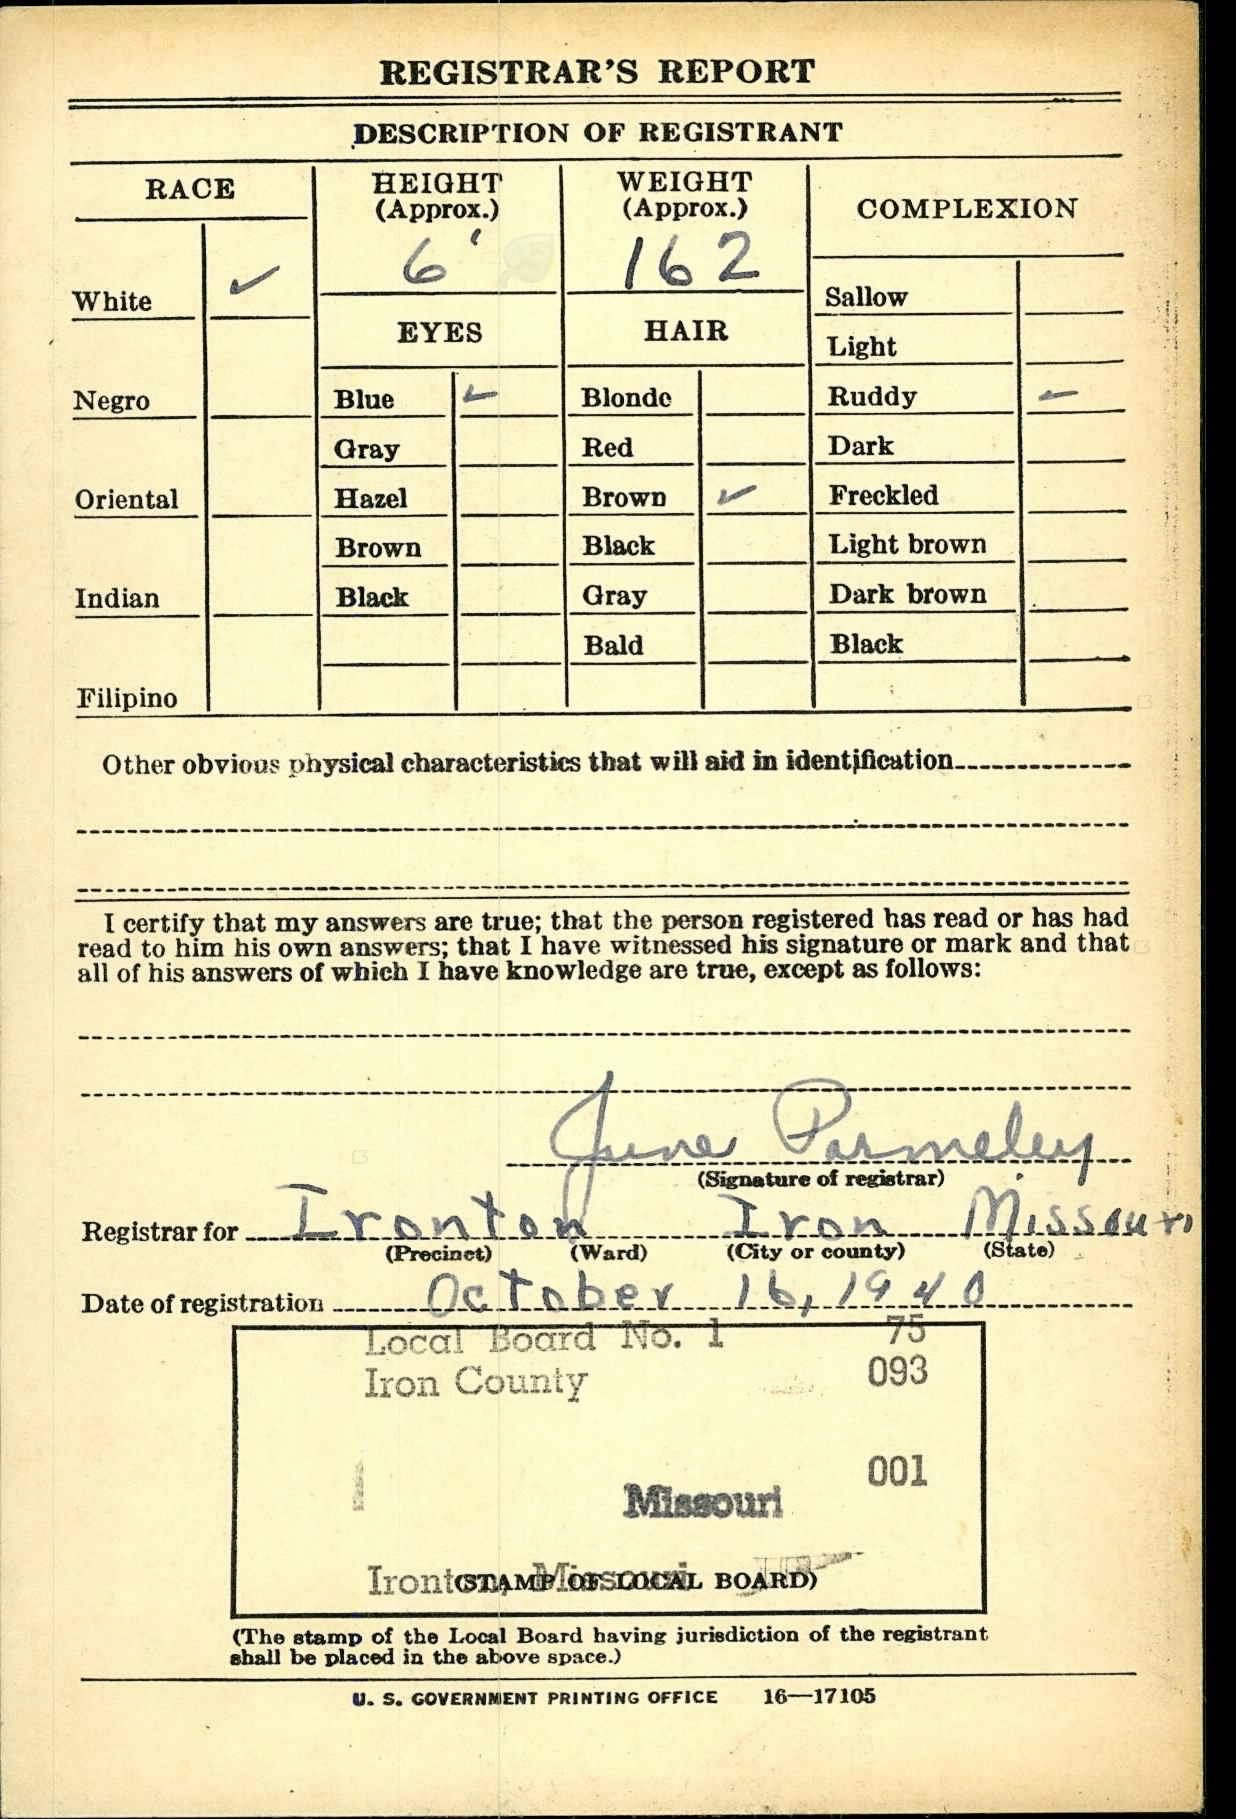 REGISTRAR'S REPORT
DESCRIPTION OF REGISTRANT
RACE
HEIGHT
(Approx.)
6'
WEIGHT
(Approx.)
162
COMPLEXION
White ✓
Negro
Oriental
Indian
Filipino
EYES
Blue ✓
Gray
Hazel
Brown
Black
HAIR
Blonde
Red
Brown ✓
Black
Gray
Bald
Sallow
Light
Ruddy ✓
Dark
Freckled
Light brown
Dark brown
Black
Other obvious physical characteristics that will aid in identification
I certify that my answers are true; that the person registered has read or has had
read to him his own answers; that I have witnessed his signature or mark and that
all of his answers of which I have knowledge are true, except as follows:
June Parmeley
(Signature of registrar)
Registrar for Ironton Iron Missouri
(Precinct) (Ward) (City or county) (State)
Date of registration October 16, 1940
Local Board No. 1 75
Iron County 093
001
Missouri
Ironton, Missouri
(STAMP OF LOCAL BOARD)
(The stamp of the Local Board having jurisdiction of the registrant
shall be placed in the above space.)
U. S. GOVERNMENT PRINTING OFFICE 16—17105